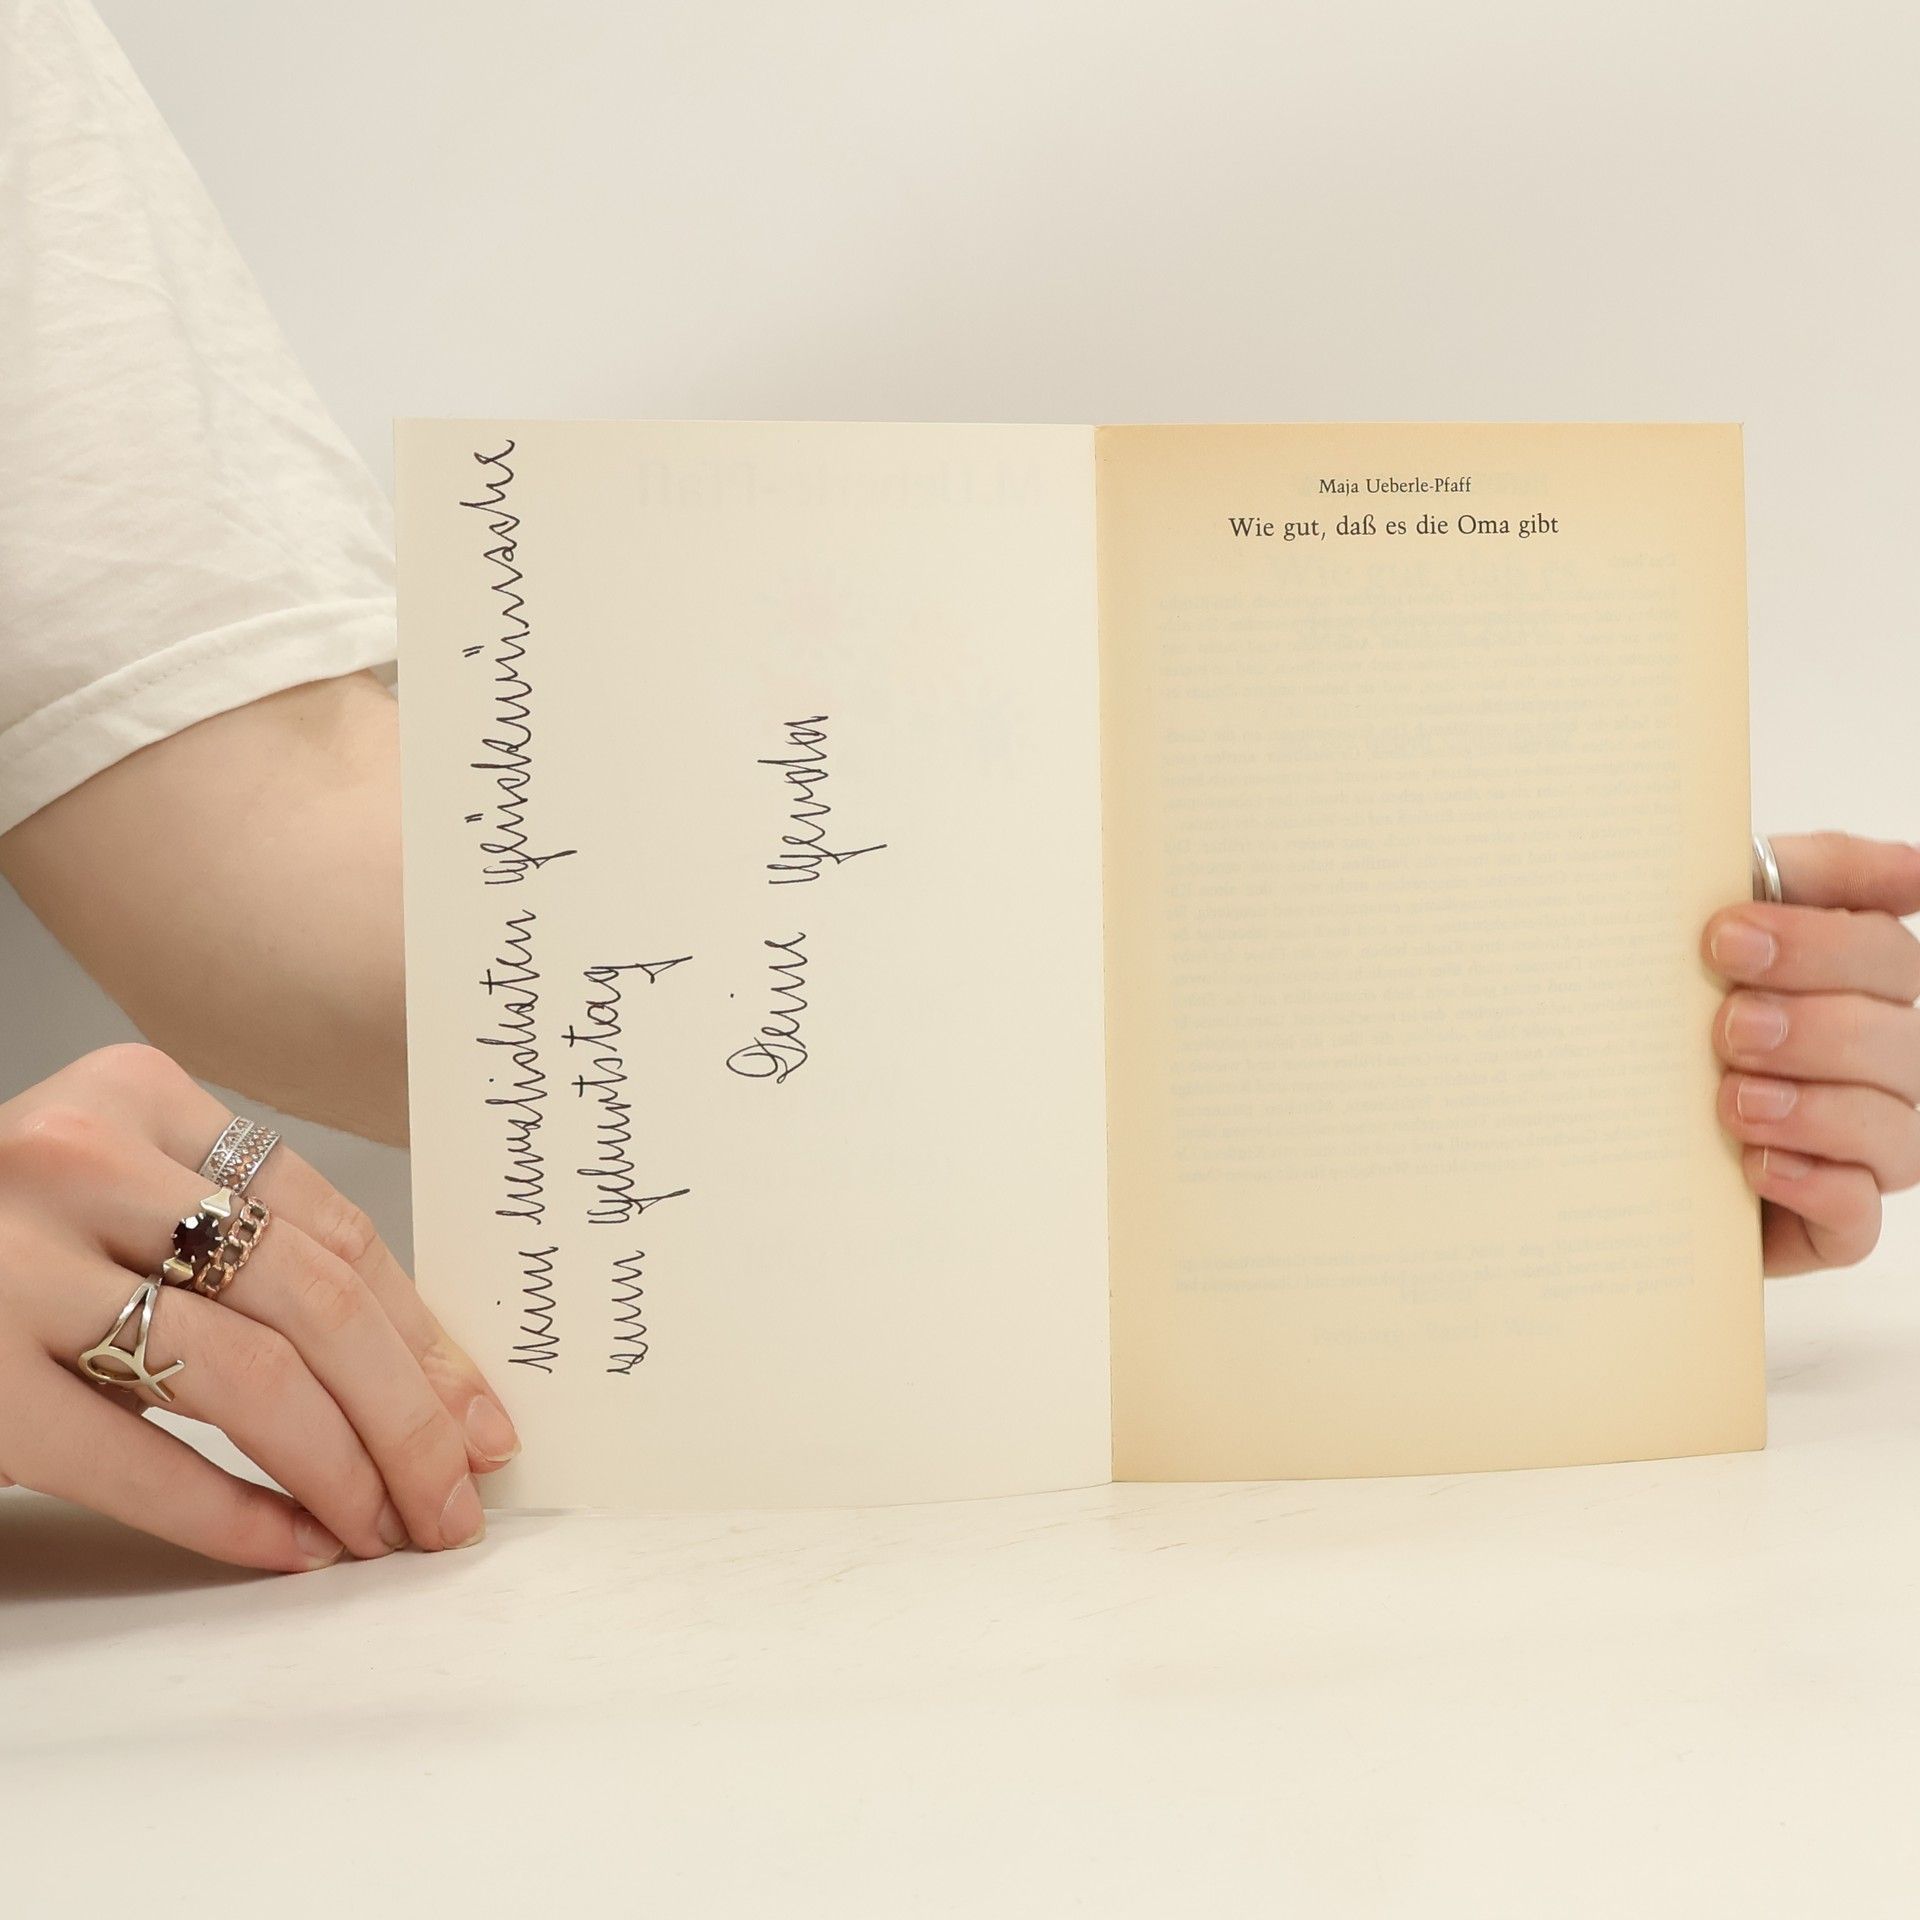 Meine herzlichsten Glückwünsche
zum Geburtstag
Deine
Maja Ueberle-Pfaff
Wie gut, daß es die Oma gibt